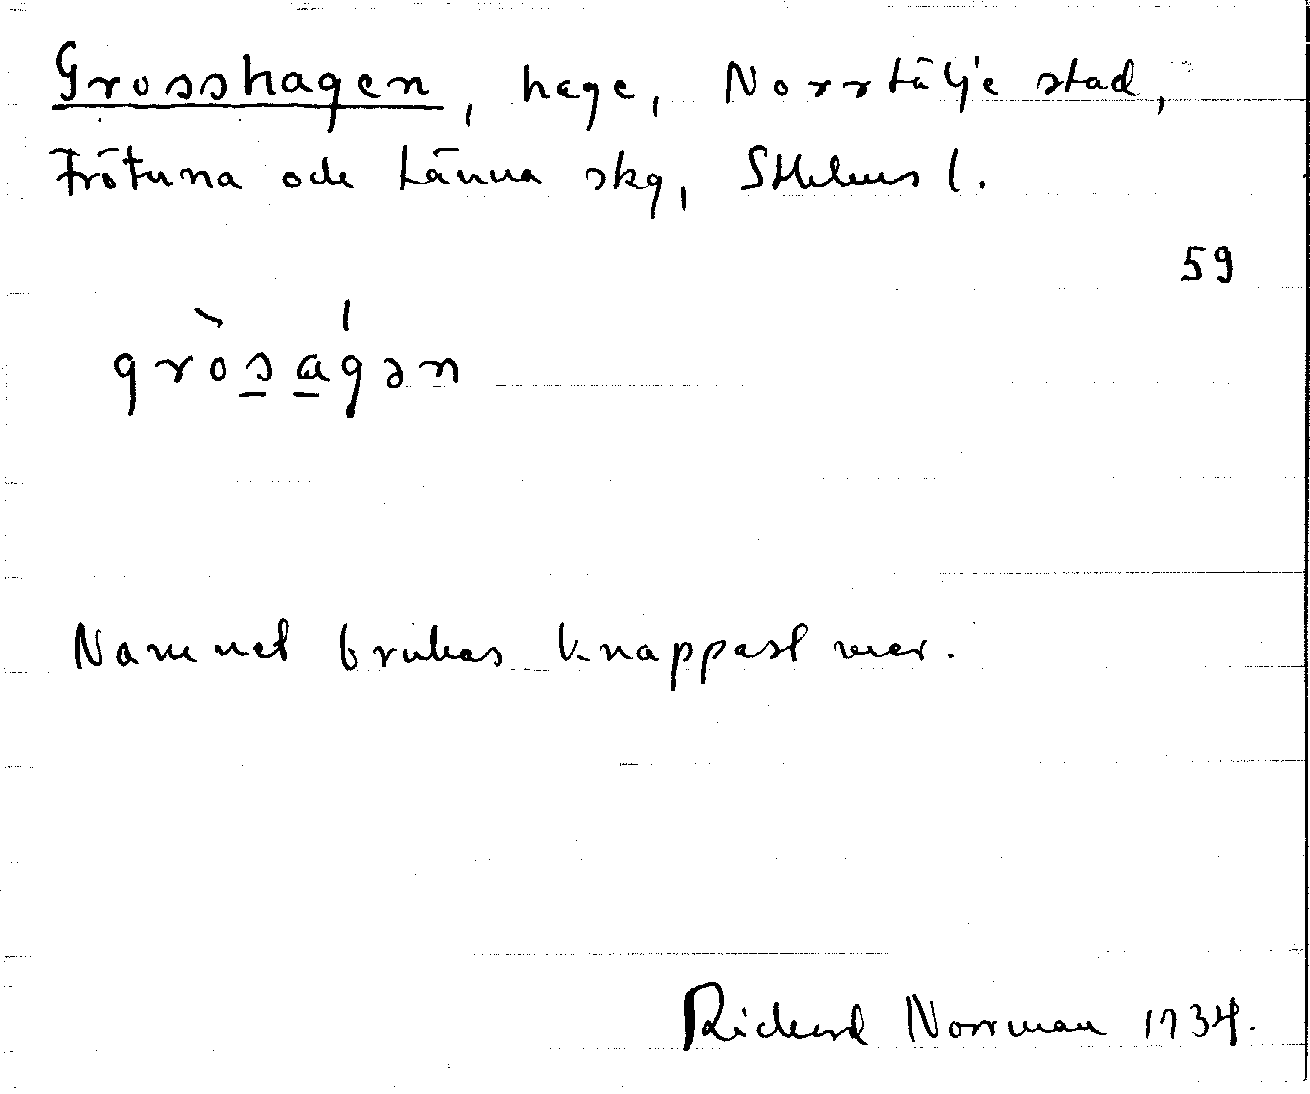 Grosshagen, hage, Norrtälje stad,
Frötuna och Länna skg, Sthlms l.
59
gròságən
Namnet brukas knappast mer.
Rickard Norrman 1934.